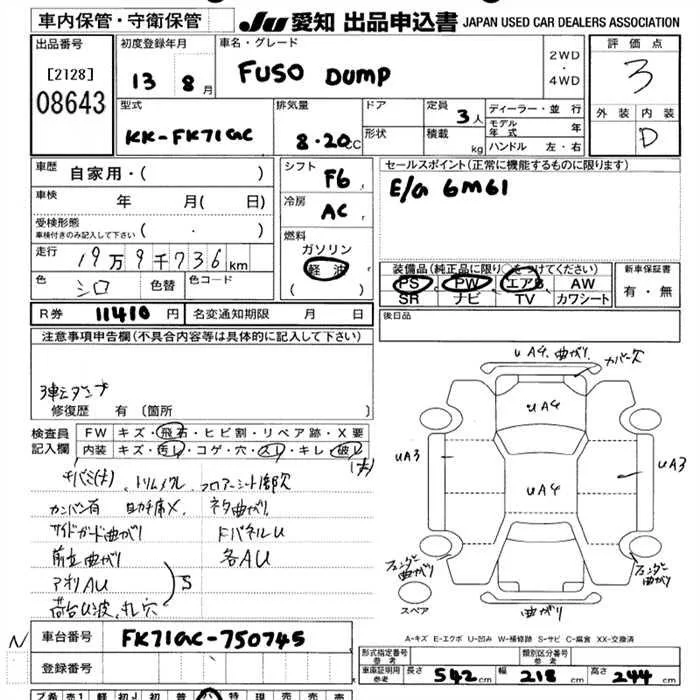 車内保管・守衛保管 JU 愛知 出品申込書 JAPAN USED CAR DEALERS ASSOCIATION
出品番号 [2128] 08643
初度登録年月 13 8月
車名・グレード FUSO DUMP
2WD・4WD
評価点 3
外装 内装 D
型式 KK-FK71GC
排気量 8.20CC
ドア 形状
定員 3人
積載 kg
ディーラー・並行
モデル年式 年
ハンドル 左・右
車歴 自家用・( )
車検 年 月( 日)
受検形態 車検付きのみ記入して下さい ( ・ )
走行 19万9千736km
色 シロ 色替 色コード
シフト F6
冷房 AC
燃料 ガソリン 軽油 ( )
セールスポイント(正常に機能するものに限ります)
E/G 6M61
装備品(純正品に限り○をつけてください)
PS PW エアB AW
SR ナビ TV カワシート
新車保証書 有・無
R券 11410円 名変通知期限 月 日
後日品
注意事項申告欄(不具合内容等は具体的に記入して下さい)
3転ダンプ
修復歴 有 (箇所 )
検査員記入欄
FW キズ・飛石・ヒビ割・リペア跡・X要
内装 キズ・汚レ・コゲ・穴・スレ・キレ・破レ
(大)
トリムメクレ フロアーシート部欠
カンバン有 ネタ曲がり
サイドガード曲がり FパネルU
前立曲がり 各AU
アオリAU
荷台U波、キレ穴
S
UA4、曲がり カバー欠
UA4
UA3
UA4
UA3
フェンダー曲がり
フェンダー曲がり
スペア
曲がり
A-キズ E-エクボ U-凹み W-補修跡 S-サビ C-腐食 XX-交換済
N
車台番号 FK71GC-750745
登録番号
形式指定番号 参考
類別区分番号 参考
車庫証明用 参考 長さ 542cm 幅 218cm 高さ 244cm